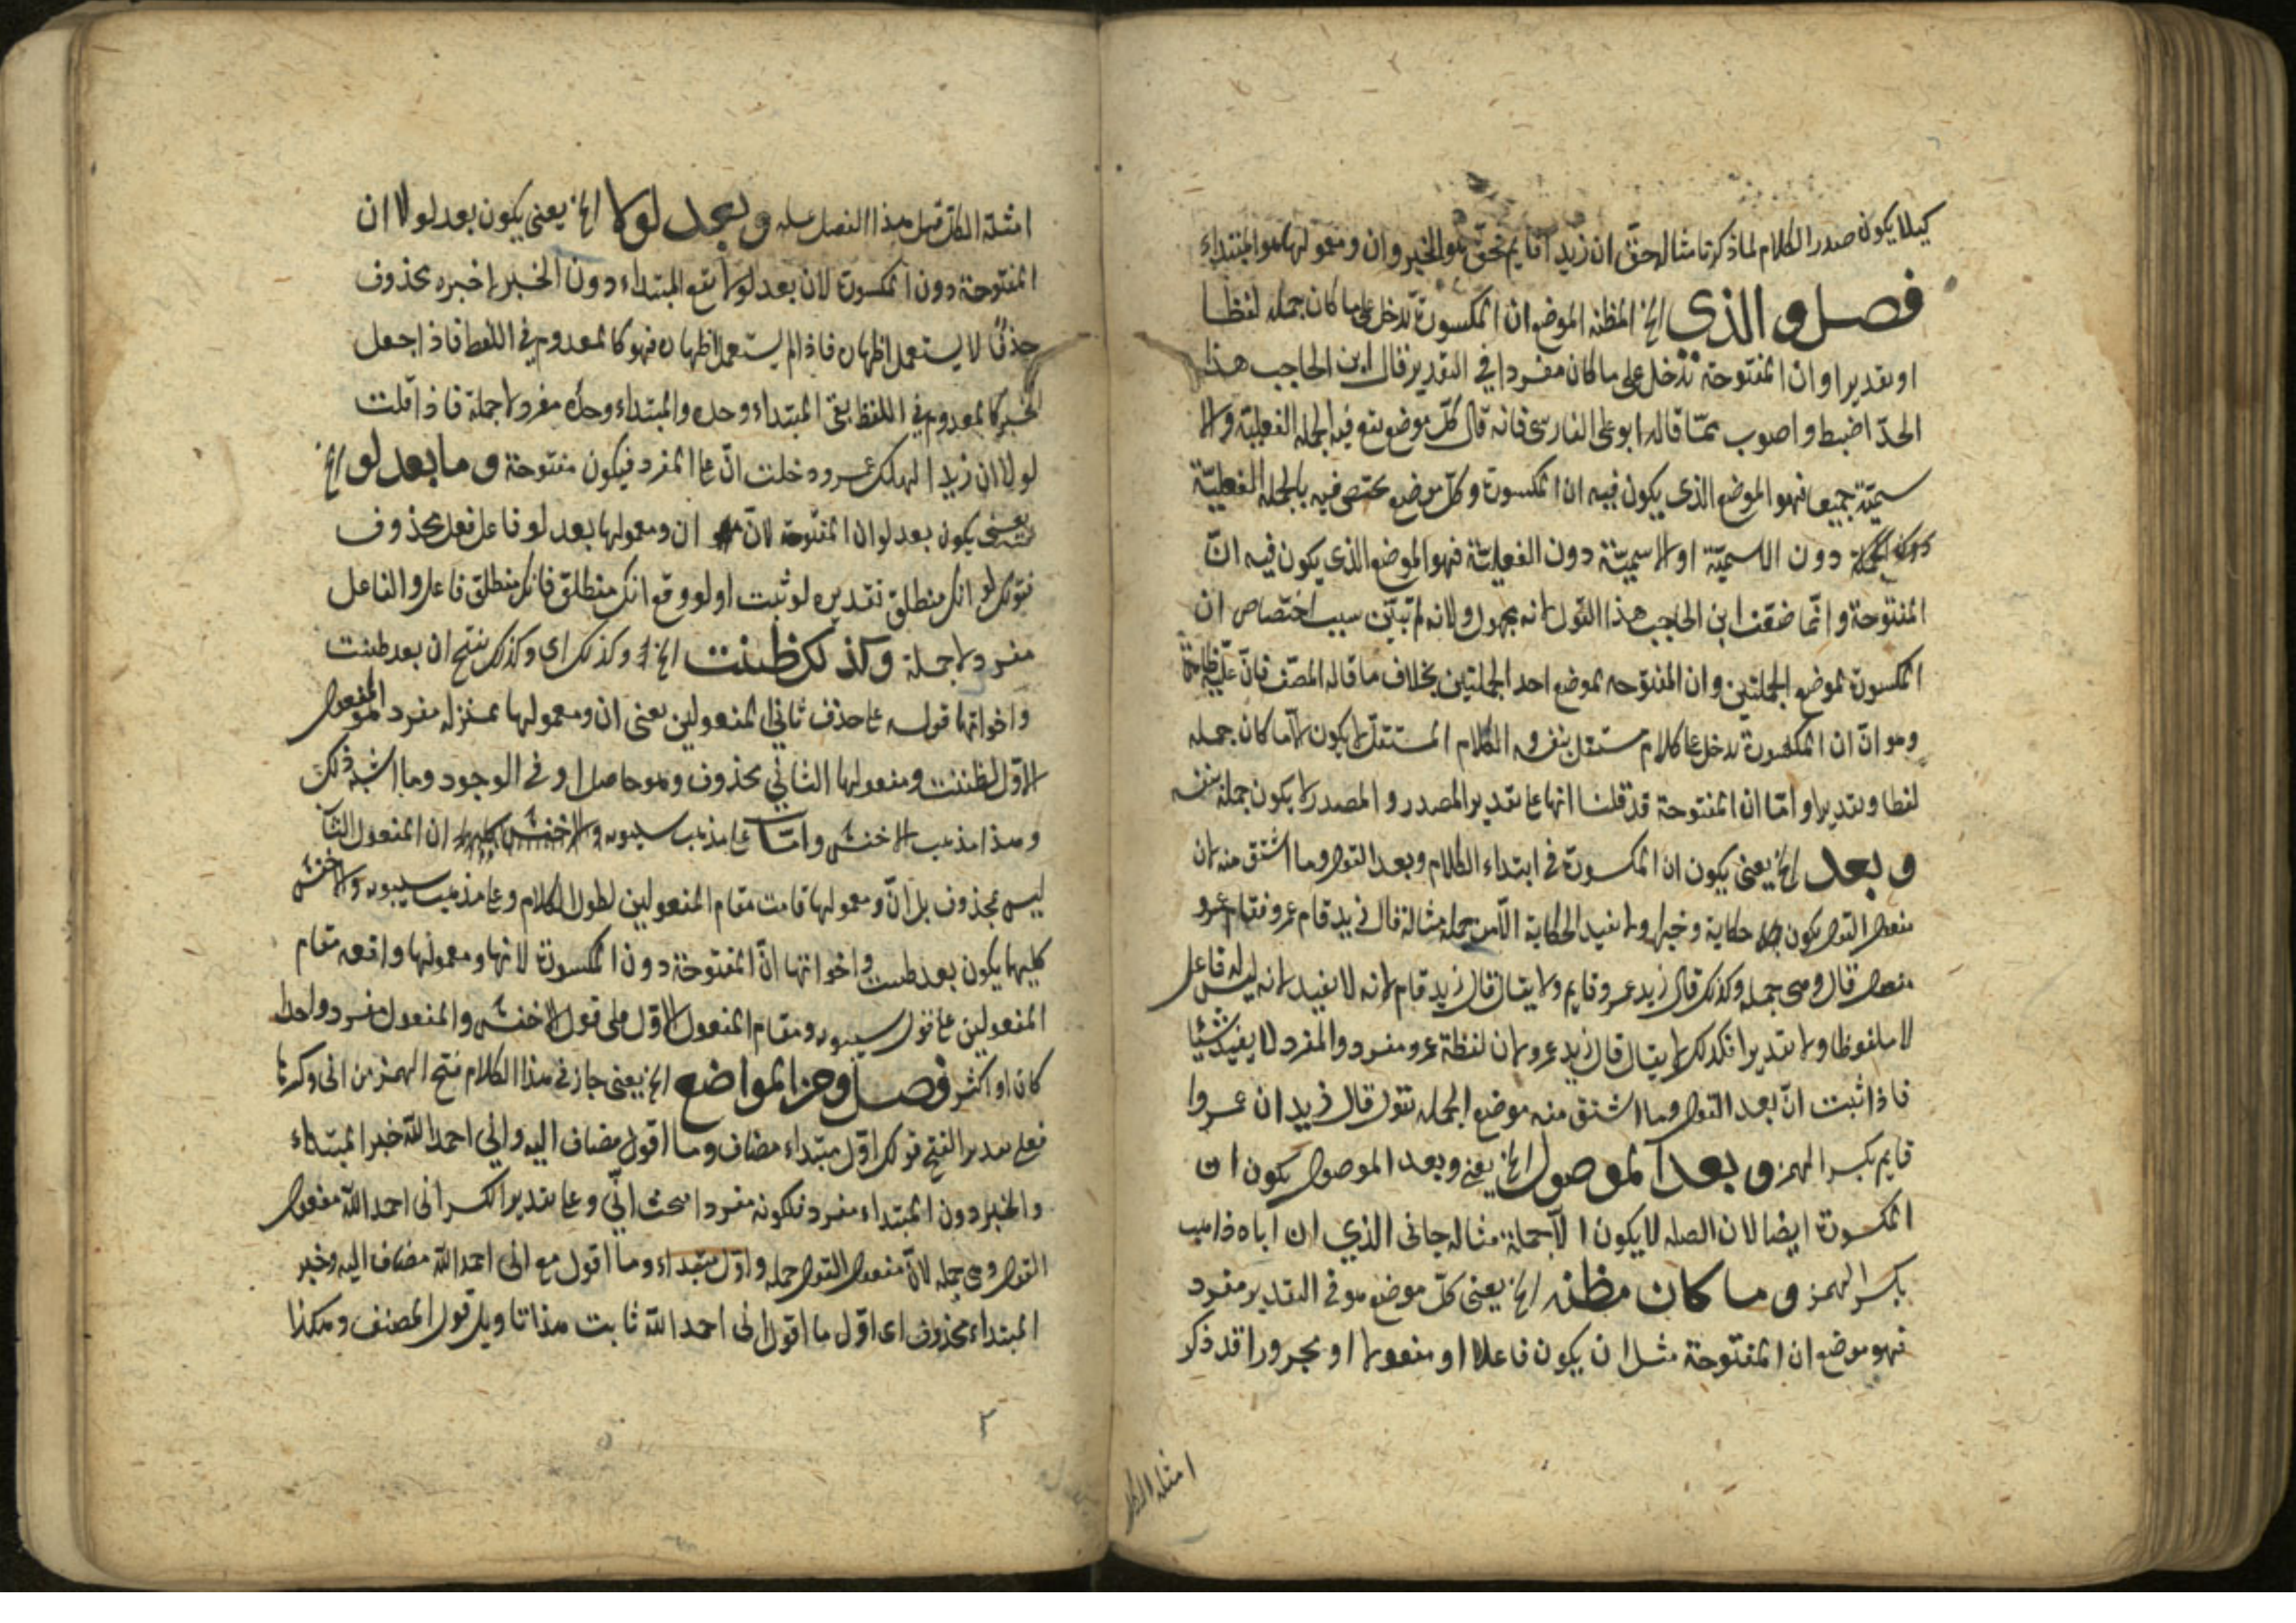 كيلا يكون صدر الكلام لما ذكرنا مثاله حق ان زيدا قايم فحق هو الخبر وان ومعمولها هو المبتداء
فصل والذي الخ المظنه الموضع ان المكسورة تدخل على ما كان جملة لفظا
او تقديرا وان المفتوحة تدخل على ما كان مفردا في التقدير قال ابن الحاجب هذا
الحد اضبط واصوب مما قاله ابو على الفارسى فانه قال كل موضع يقع فيه الجملة الفعلية والا
سمية جميعا فهو الموضع الذى يكون فيه ان المكسورة وكل موضع يختص فيه بالجملة الفعلية
دون الاسمية او الاسمية دون الفعلية فهو الموضع الذى يكون فيه ان
المفتوحة وانما ضعف ابن الحاجب هذا القول لانه مجهول ولانه لم تبين سبب اختصاص ان
المكسورة بموضع الجملتين وان المفتوحه بموضع احد الجملتين بخلاف ما قاله المصنف فان علته ظاهرة
وهو ان ان المكسورة تدخل على كلام مستقل بنفسه والكلام المستقل لا يكون الا ما كان جمله
لفظا وتقديرا واما ان المفتوحة قد قلنا انها على تقدير المصدر والمصدر لا يكون جملة بنفسه
وبعد الخ يعنى يكون ان المكسورة في ابتداء الكلام وبعد القول وما اشتق منه لان
مفعول القول يكون حكاية وخبرا ولا تفيد الحكاية الا من جملة مثاله قال زيد قام عمرو فقام عمرو
مفعول قال وهى جمله وكذلك قال زيد عمرو قايم ولا يقال قال زيد قام لانه لا يفيد لانه ليس له فاعل
لا ملفوظا ولا تقديرا فكذلك لا يقال قال زيد عمرو لان لفظة عمرو مفرد والمفرد لا يفيد شيئا
فاذا ثبت ان بعد القول وما اشتق منه موضع الجمله تقول قال زيد ان عمروا
قايم بكسر الهمز وبعد الموصول الخ يعنى وبعد الموصول يكون ان
المكسورة ايضا لان الصله لا يكون الا جملة مثاله جانى الذي ان اباه ذاهب
بكسر الهمز وما كان مظنه الخ يعنى كل موضع هو فى التقدير مفرد
فهو موضع ان المفتوحة مثل ان يكون فاعلا او مفعولا او مجرورا قد ذكر
امثلة الكل
امثلة الكل قبل هذا الفصل وبعد لولا الخ يعنى يكون بعد لولا ان
المفتوحة دون المكسورة لان بعد لولا يقع المبتداء دون الخبر اخبره محذوف
حذفا لا يستعمل اظهاره فاذا لم يستعمل اظهاره فهو كالمعدوم في اللفظ فاذا جعل
الخبر كالمعدوم في اللفظ بقى المبتداء وحده والمبتداء وحده مفرد لا جملة فاذا قلت
لولا ان زيدا لهلك عمرو دخلت ان على المفرد فيكون مفتوحة وما بعد لو الخ
يعنى يكون بعد لو ان المفتوحة لان ان ومعمولها بعد لو فاعل فعل محذوف
فقولك لو انك منطلق تقديره لو ثبت او لو وقع انك منطلق فانك منطلق فاعل والفاعل
مفرد لا جملة وكذلك ظننت الخ وكذلك اى وكذلك يفتح ان بعد ظننت
واخواتها قوله على حذف ثاني المفعولين يعنى ان ومعمولها بمنزلة مفرد هو المفعول
الاول لظننت ومفعولها الثاني محذوف وهو حاصل او في الوجود وما اشبه ذلك
وهذا مذهب الاخفش واما على مذهب سيبويه ان المفعول الثاني
ليس بمحذوف بل ان ومعمولها قامت مقام المفعولين لطول الكلام وعلى مذهب سيبويه والاخفش
كليهما يكون بعد ظننت واخواتها ان المفتوحة دون المكسورة لانها ومعمولها واقعه مقام
المفعولين على قول سيبويه ومقام المفعول الاول على قول الاخفش والمفعول مفرد واحدا
كان او اكثر فصل ومن المواضع الخ يعنى جاز في هذا الكلام فتح الهمز من انى وكسرها
فعلى تقدير الفتح قولك اول مبتداء مضاف وما اقول مضاف اليه واني احمد الله خبر المبتداء
والخبر دون المبتداء مفرد فلكونه مفردا فتحت اني وعلى تقدير الكسر انى احمد الله مفعول
القول وهى جمله لان مفعول القول جمله واول مبتداء وما اقول مع انى احمد الله مضاف اليه وخبر
المبتداء محذوف اى اول ما اقول انى احمد الله ثابت هذا تاويل قول المصنف وهكذا